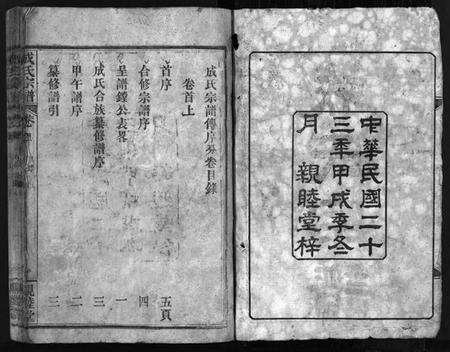 中華民國二十
三年甲戌季冬
月 親睦堂梓
成氏宗譜傳序巻卷目錄
卷首上
首序 五頁
合修宗譜序 四
呈譜鐘公表畧 一
成氏合族纂修譜序 三
甲午譜序 二
纂修譜引 三
成氏宗譜 卷首
親睦堂